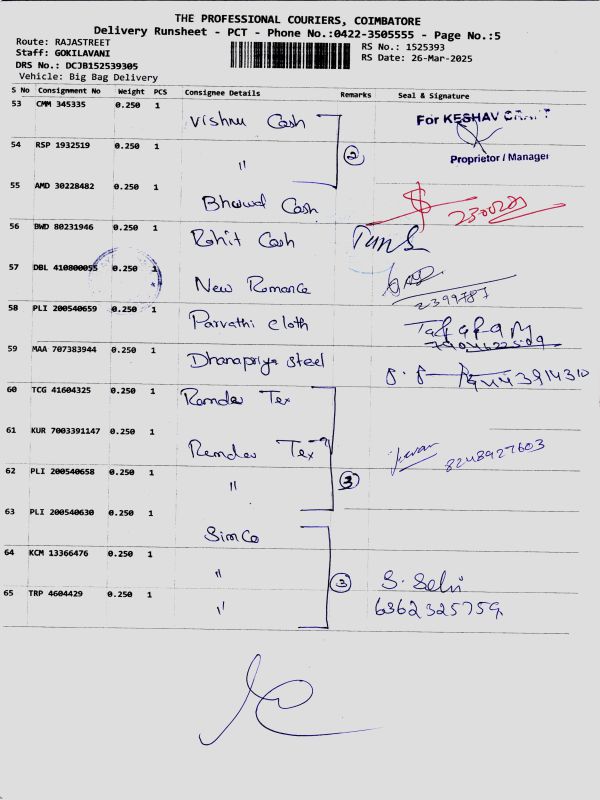 THE PROFESSIONAL COURIERS, COIMBATORE
Delivery Runsheet - PCT - Phone No.:0422-3505555 - Page No.:5
Route: RAJASTREET
Staff: GOKILAVANI
DRS No.: DCJB152539305
Vehicle: Big Bag Delivery
RS No.: 1525393
RS Date: 26-Mar-2025
S No Consignment No Weight PCS Consignee Details Remarks Seal & Signature
53 CMM 345335 0.250 1 Vishnu Cash For KESHAV
54 RSP 1932519 0.250 1 " 2 Proprietor / Manager
55 AMD 30228482 0.250 1 Cash
56 BWD 80231946 0.250 1 Rohit Cash
57 DBL 410800055 0.250 1 New Romance 2399787
58 PLI 200540659 0.250 1 Parvathi cloth
59 MAA 707383944 0.250 1 Dhanapriya steel
60 TCG 41604325 0.250 1 Ramdev Tex
61 KUR 7003391147 0.250 1 Ramdev Tex 8248927603
62 PLI 200540658 0.250 1 " 3
63 PLI 200540630 0.250 1 Simco
64 KCM 13366476 0.250 1 " 3 S. Selvi
65 TRP 4604429 0.250 1 " 6362325759